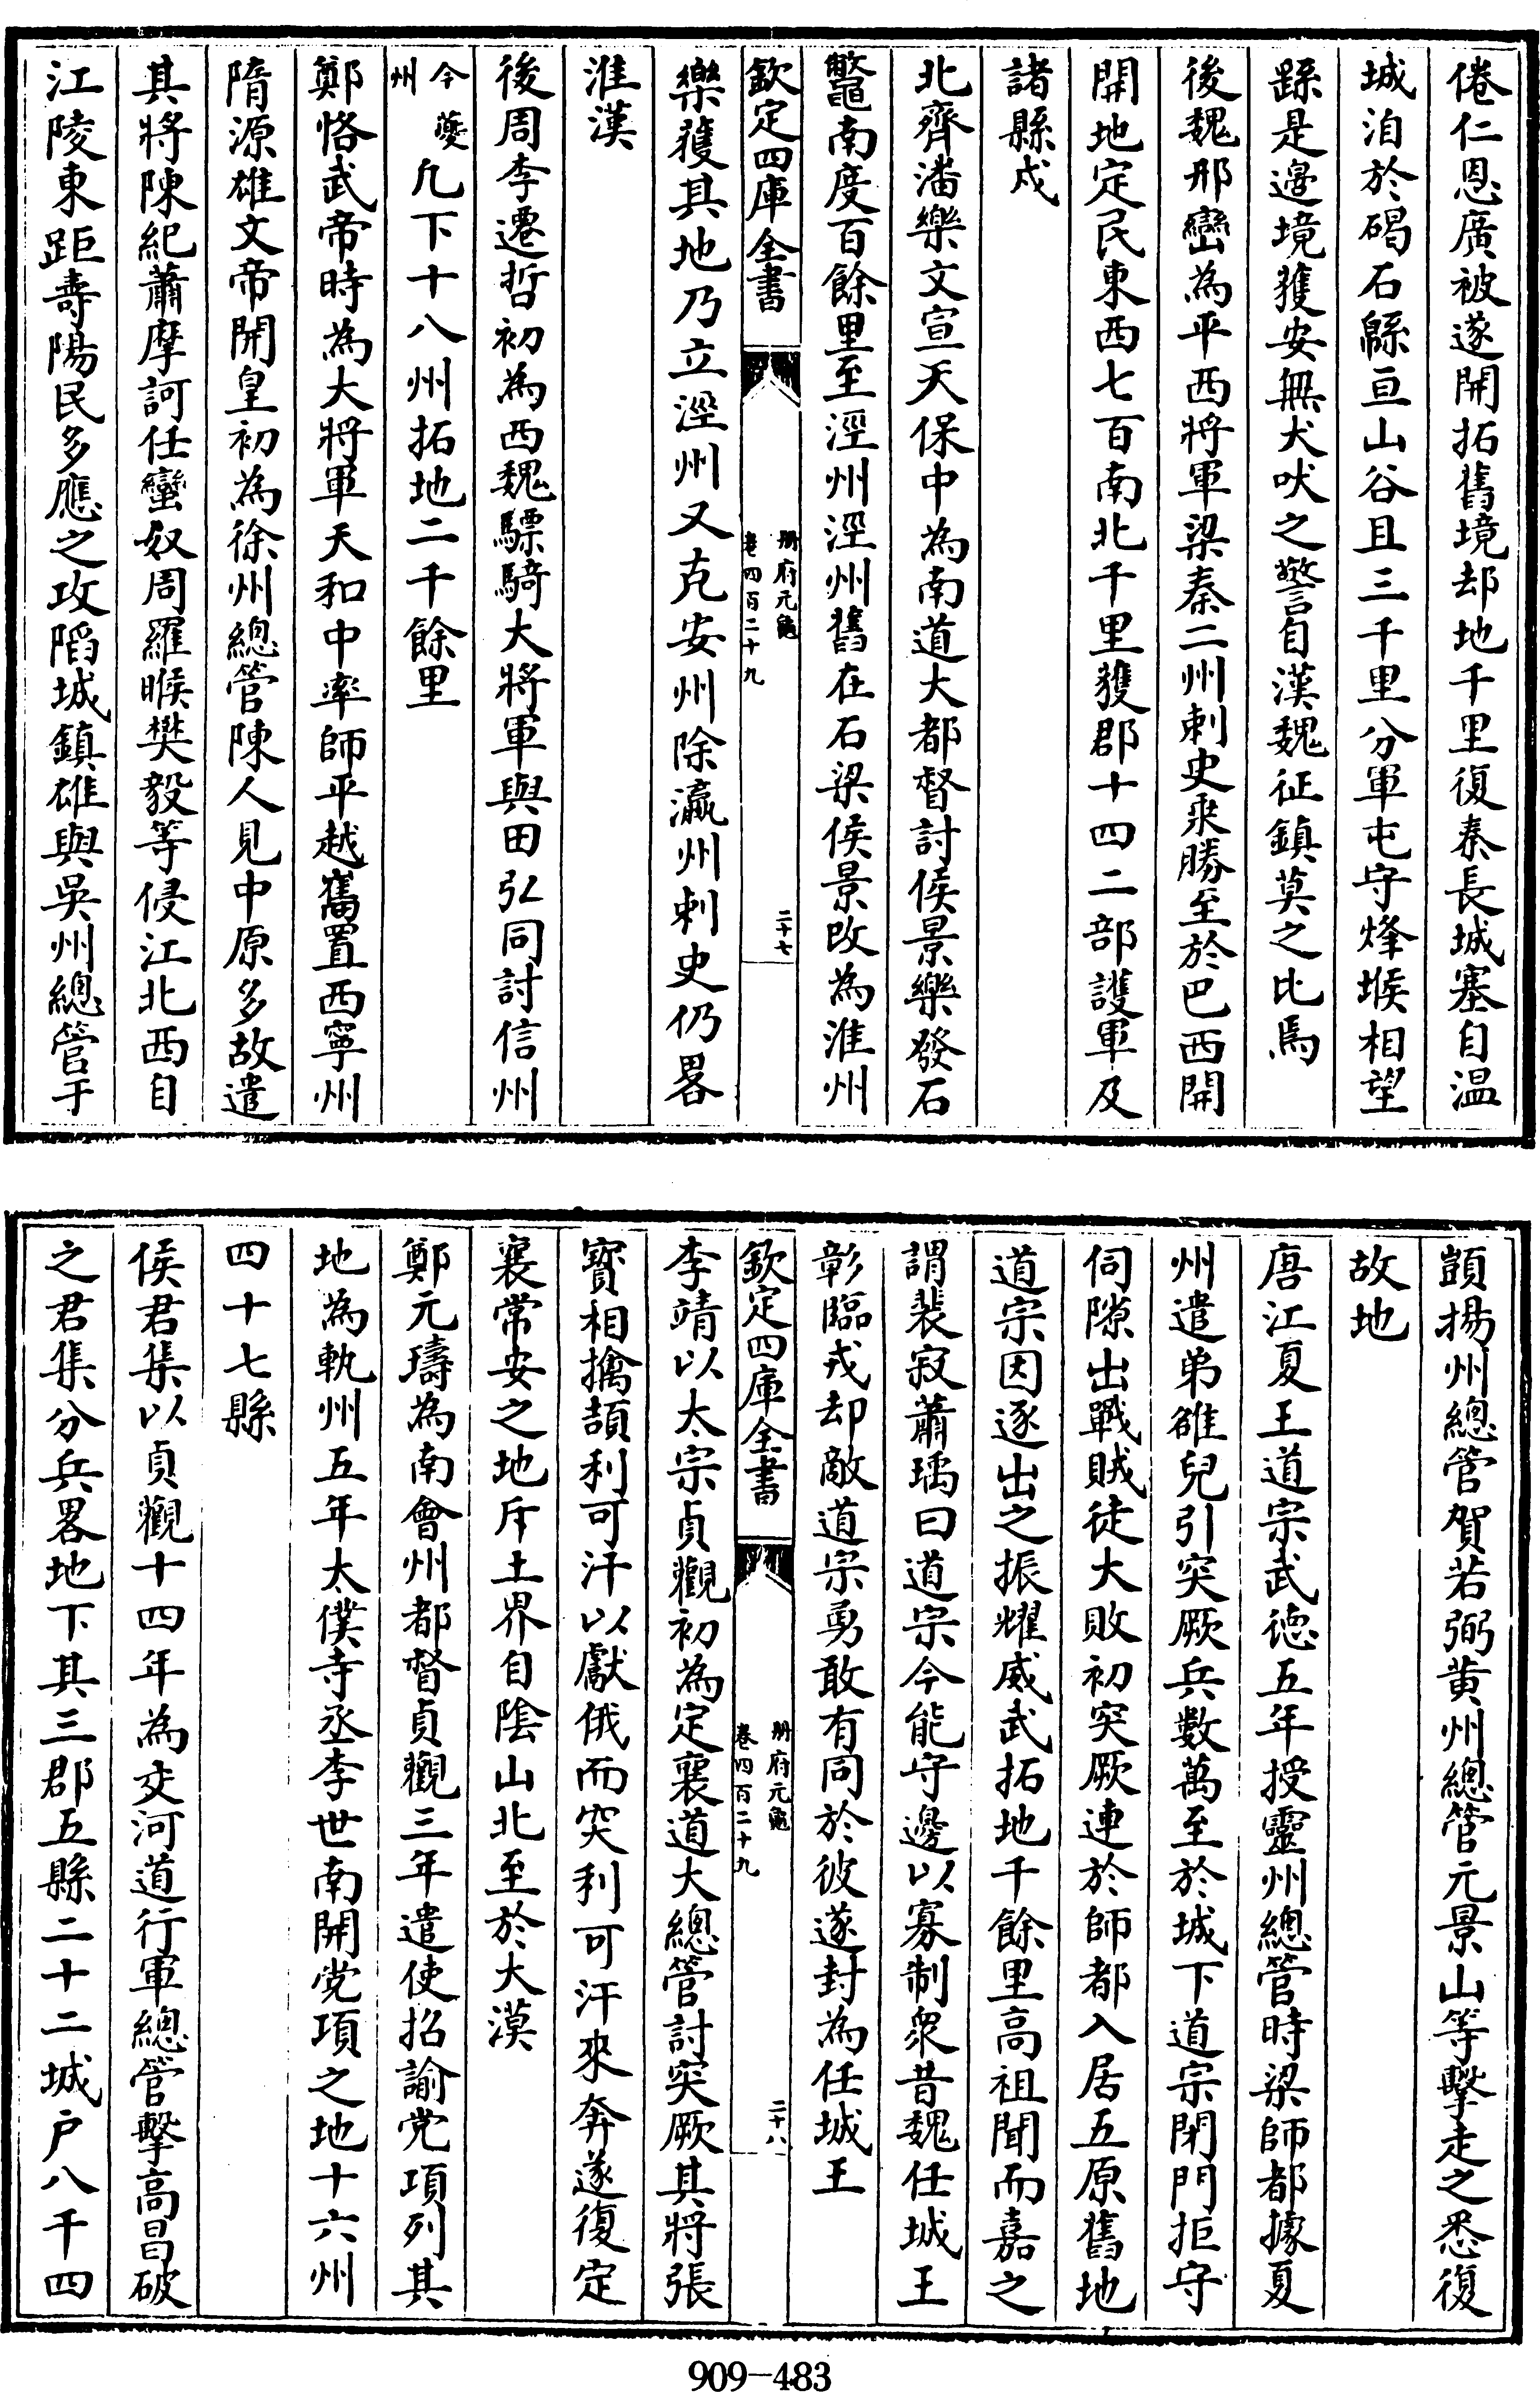 倦仁恩廣被遂開拓舊境却地千里復秦長城塞自温
城洎於碣石緜亘山谷且三千里分軍屯守烽堠相望
繇是邉境獲安無犬吠之警自漢魏征鎮莫之比焉
後魏邢巒為平西將軍梁秦二州刺史乘勝至於巴西開
開地定民東西七百南北千里獲郡十四二部䕶軍及
諸縣戍
北齊潘樂文宣天保中為南道大都督討侯景樂發石
鼈南度百餘里至涇州涇州舊在石梁侯景改為淮州
欽定四庫全書
册府元龜
卷四百二十九
二十七
樂獲其地乃立涇州又克安州除瀛州刺史仍畧
淮漢
後周李遷哲初為西魏驃騎大將軍與田弘同討信州
今夔州凡下十八州拓地二千餘里
鄭恪武帝時為大將軍天和中率師平越巂置西寧州
隋源雄文帝開皇初為徐州總管陳人見中原多故遣
其將陳紀蕭摩訶任蠻奴周羅睺樊毅等侵江北西自
江陵東距壽陽民多應之攻䧟城鎮雄與吳州總管于
顗揚州總管賀若弼黄州總管元景山等擊走之悉復
故地
唐江夏王道宗武德五年授靈州總管時梁師都據夏
州遣弟雒兒引突厥兵數萬至於城下道宗閉門拒守
伺隙出戰賊徒大敗初突厥連於師都入居五原舊地
道宗因逐出之振耀威武拓地千餘里高祖聞而嘉之
謂裴寂蕭瑀曰道宗今能守邊以寡制衆昔魏任城王
彰臨戎却敵道宗勇敢有同於彼遂封為任城王
欽定四庫全書
册府元龜
卷四百二十九
二十八
李靖以太宗貞觀初為定襄道大總管討突厥其將張
寳相擒頡利可汗以獻俄而突利可汗來奔遂復定
襄常安之地斥土界自隂山北至於大漠
鄭元璹為南會州都督貞觀三年遣使招諭党項列其
地為軌州五年太僕寺丞李世南開党項之地十六州
四十七縣
侯君集以貞觀十四年為交河道行軍總管擊高昌破
之君集分兵畧地下其三郡五縣二十二城户八千四
909-483